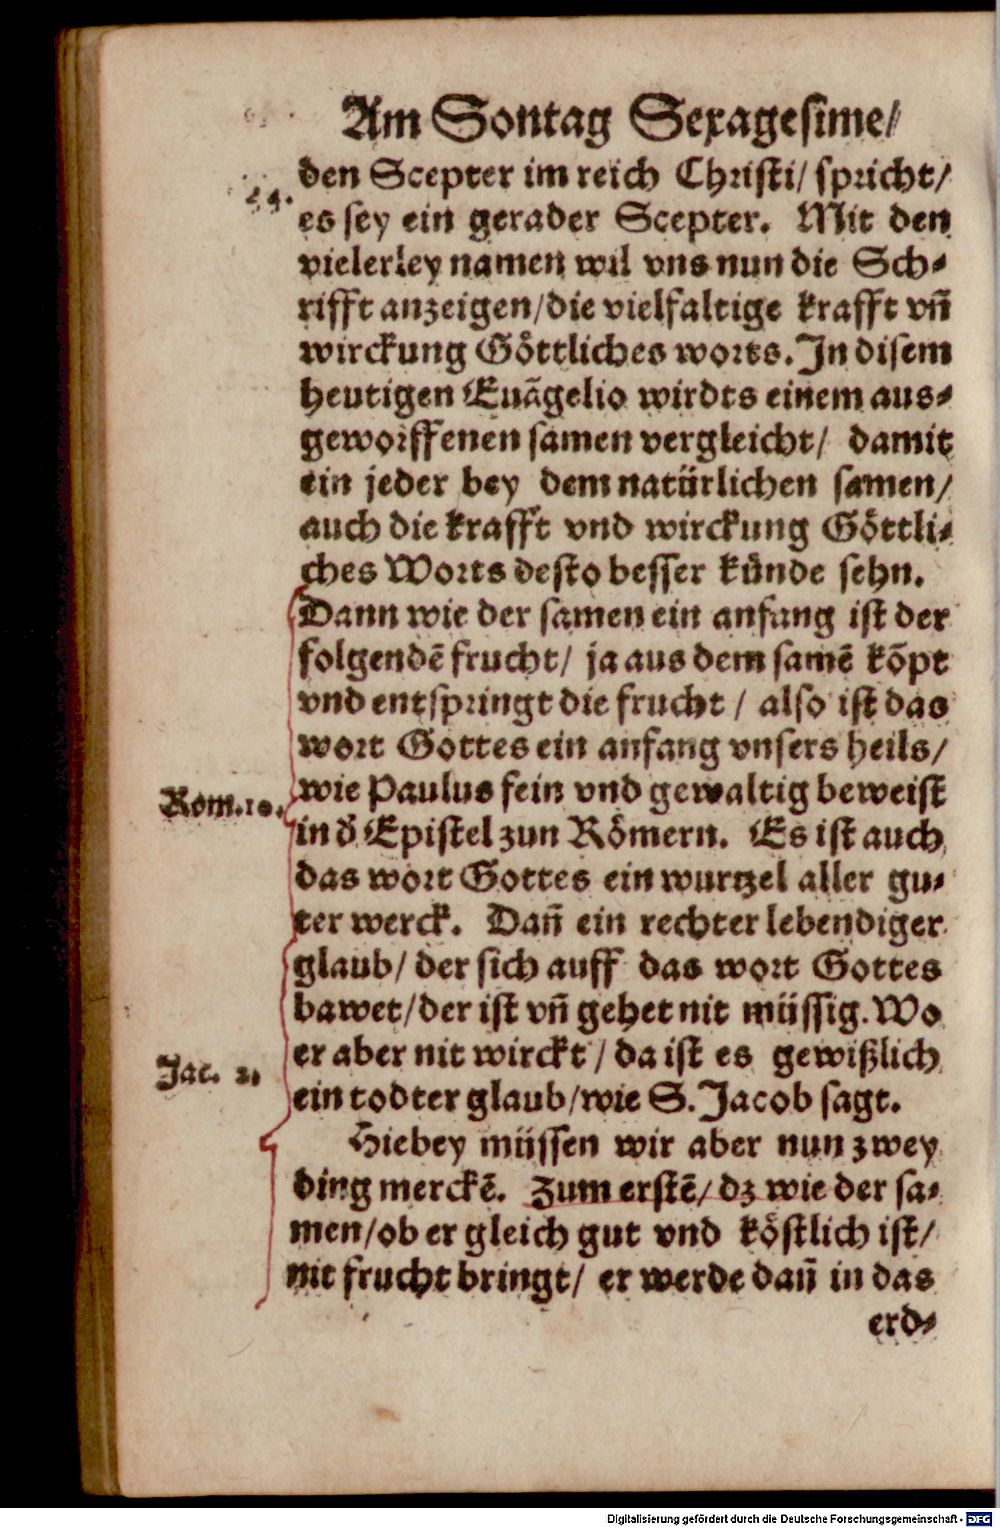 Am Sontag Sexagesime/
den Scepter im reich Christi/ spricht/
es sey ein gerader Scepter. Mit den
vielerley namen wil vns nun die Sch⸗
rifft anzeigen/die vielfaltige krafft vñ
wirckung Göttliches worts. In disem
heutigen Euãgelio wirdts einem aus⸗
geworffenen samen vergleicht/ damit
ein jeder bey dem natürlichen samen/
auch die krafft vnd wirckung Göttli⸗
ches Worts desto besser künde sehn.
Dann wie der samen ein anfang ist der
folgendẽ frucht/ ja aus dem samẽ kõpt
vnd entspringt die frucht / also ist das
wort Gottes ein anfang vnsers heils/
wie Paulus fein vnd gewaltig beweist
Röm.10.
in d̓ Epistel zun Römern. Es ist auch
das wort Gottes ein wurtzel aller gu⸗
ter werck. Dañ ein rechter lebendiger
glaub/ der sich auff das wort Gottes
bawet/der ist vñ gehet nit müssig. Wo
er aber nit wirckt / da ist es gewißlich
Jac. 2.
ein todter glaub/wie S. Jacob sagt.
Hiebey müssen wir aber nun zwey
ding merckẽ. Zum erstẽ/ dz wie der sa⸗
men/ob er gleich gut vnd köstlich ist/
nit frucht bringt/ er werde dañ in das
erd⸗
Digitalisierung gefördert durch die Deutsche Forschungsgemeinschaft - DFG